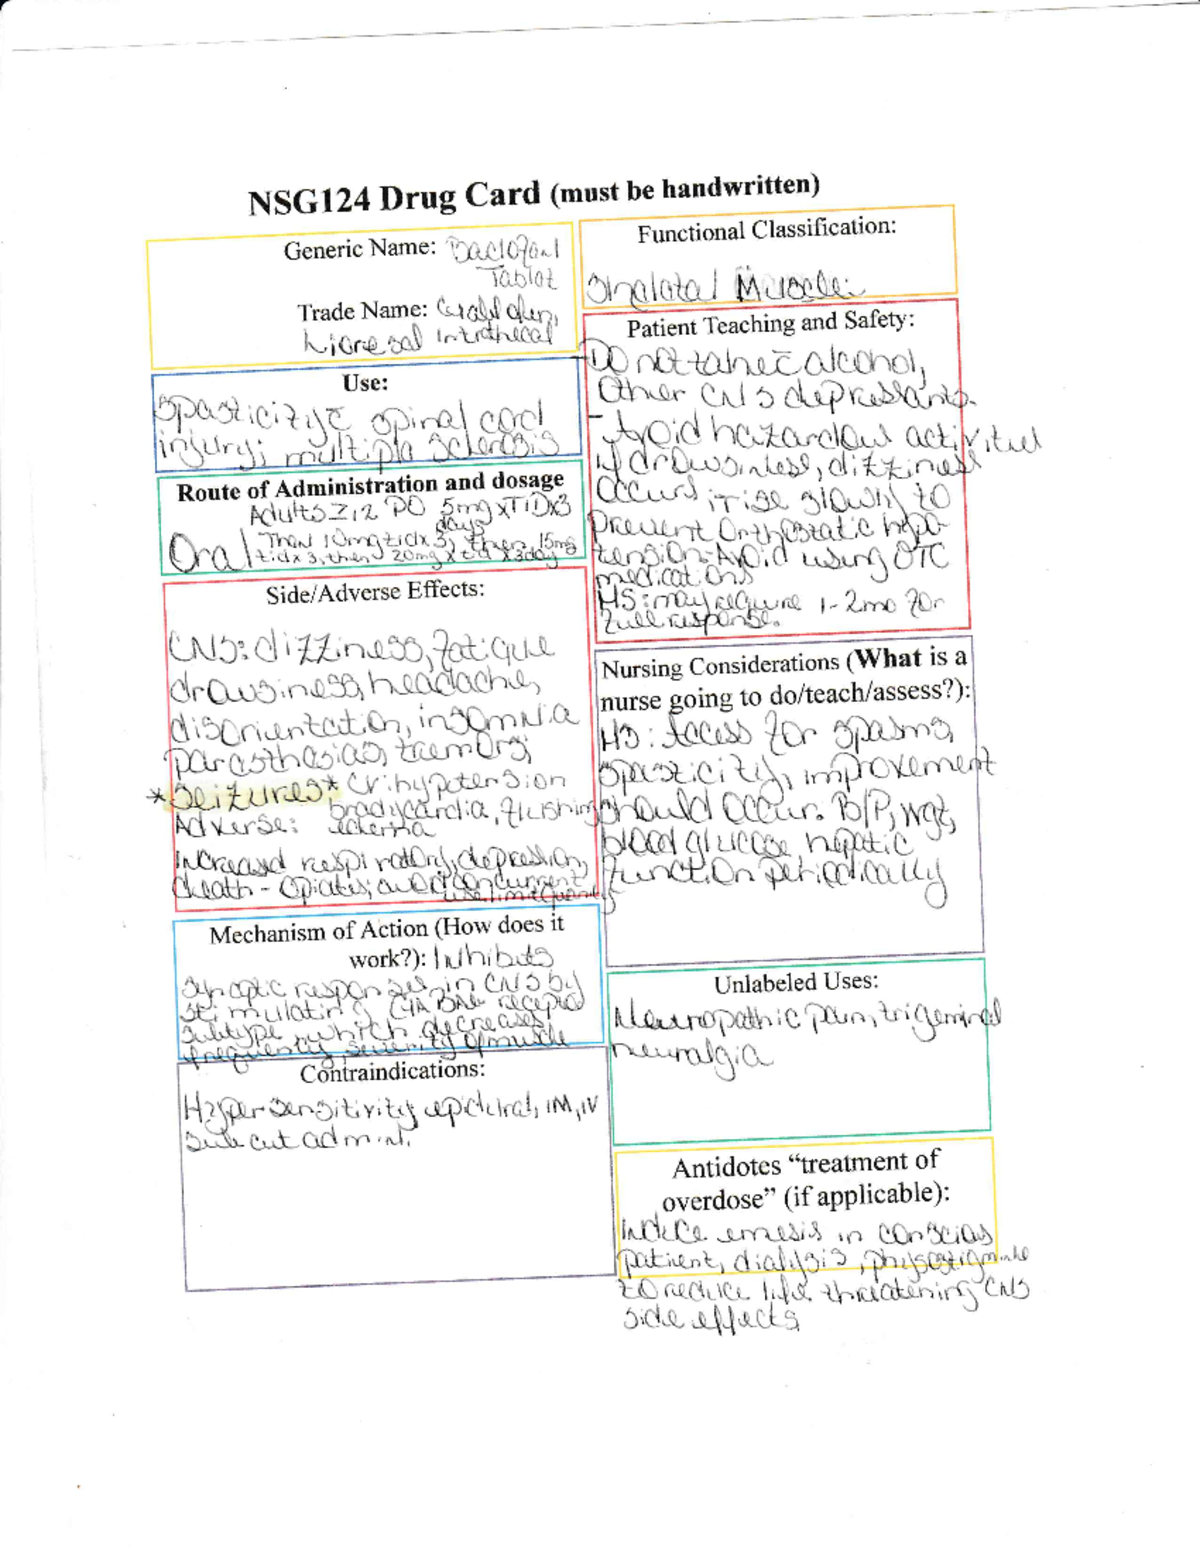 NSG124 Drug Card (must be handwritten)
Generic Name: Baclofen
Tablet
Trade Name:
Lioresal Intrathecal
Use:
Spasticity c̄ spinal cord
injury; multiple sclerosis
Route of Administration and dosage
Adults ≥12 PO 5mg x TID x 3
days
Oral
Then 10mg tid x 3, then 15mg
tid x 3, then 20mg x tid x 3day
Side/Adverse Effects:
CNS: dizziness, fatigue
drowsiness, headache,
disorientation, insomnia
parasthesias, tremors;
*Seizures* CV: hypotension
bradycardia, flushing
Adverse: edema
increased respiratory, depression,
death - opiates, concurrent
use
Mechanism of Action (How does it
work?): Inhibits
synaptic responses in CNS by
stimulating GABA receptor
subtype which decreases
frequency severity of muscle
Contraindications:
Hypersensitivity, epidural, IM, IV
subcut admin.
Functional Classification:
Skeletal Muscle
Patient Teaching and Safety:
-Do not take c̄ alcohol,
Other CNS depressants.
- Avoid hazardous activities
if drowsiness, dizziness
occurs; rise slowly to
prevent Orthostatic hypo-
tension. Avoid using OTC
medications
MS: may require 1-2mo for
full response.
Nursing Considerations (What is a
nurse going to do/teach/assess?):
MS: Assess for spasms,
spasticity, improvement
should occur. B/P, wgt,
blood glucose hepatic
function periodically
Unlabeled Uses:
Neuropathic pain, trigeminal
neuralgia
Antidotes “treatment of
overdose” (if applicable):
induce emesis in conscious
patient, dialysis, physostigmine
to reduce life threatening CNS
side effects